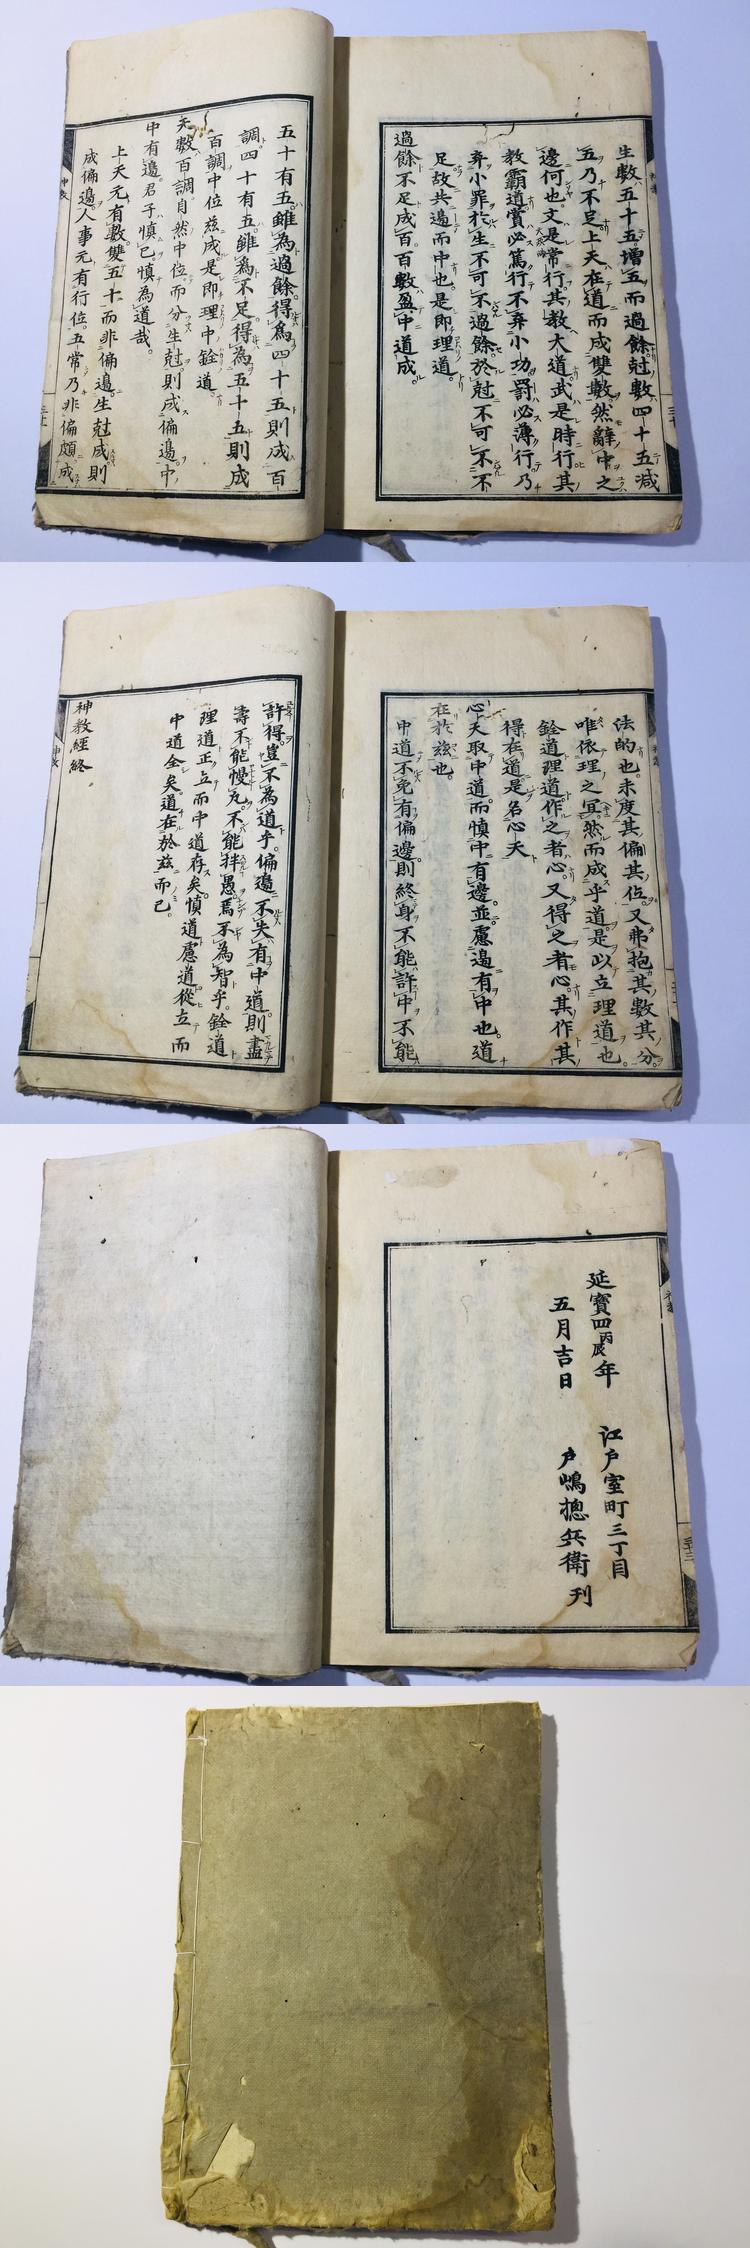 生數五十五增五而過餘尅數四十五減
五乃不足上天在道而成雙數然辭中之
邊何也文是常行其教大道武是時行其
教霸道賞必篤行不弃小功罰必薄行乃
弃小罪於生不可不過餘於尅不可不不
足故共邊而中也是即理道
過餘不足成百百數盈中道成
五十有五雖為過餘得為四十五則成百
調四十有五雖為不足得為五十五則成
百調中位茲成是即理中銓道
天數百調自然中位而分生尅則成偏邊中
中有邊君子慎已慎為道哉
上天元有數雙五十而非偏邊生尅成則
成偏邊人事元有行位五常乃非偏頗成
神教
法的也未度其偏其位又弗抱其數其分
唯依理之冥然而成乎道是以立理道也
銓道理道作之者心又得之者心其作其
得在道是名心天
心天取中道而慎中有邊並慮邊有中也道
在於茲也
中道不免有偏邊則終身不能許中不能
許得豈不為道乎偏邊不失有中道則盡
壽不能慢允不能拌愚焉不為智乎銓道
理道正立而中道存矣慎道慮道從立而
中道全矣道在於茲而已
神教經終
神教
延寶四丙辰年
五月吉日
江戶室町三丁目
戶嶋摠兵衛刊